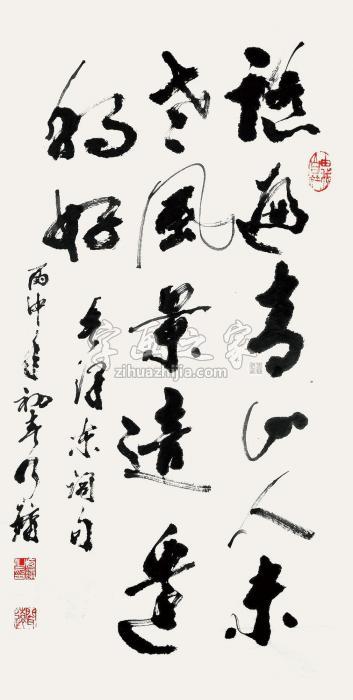 踏遍青山人未
老風景這邊
獨好
毛澤東詞句
丙申年初春
字画之家
zihuazhijia.com